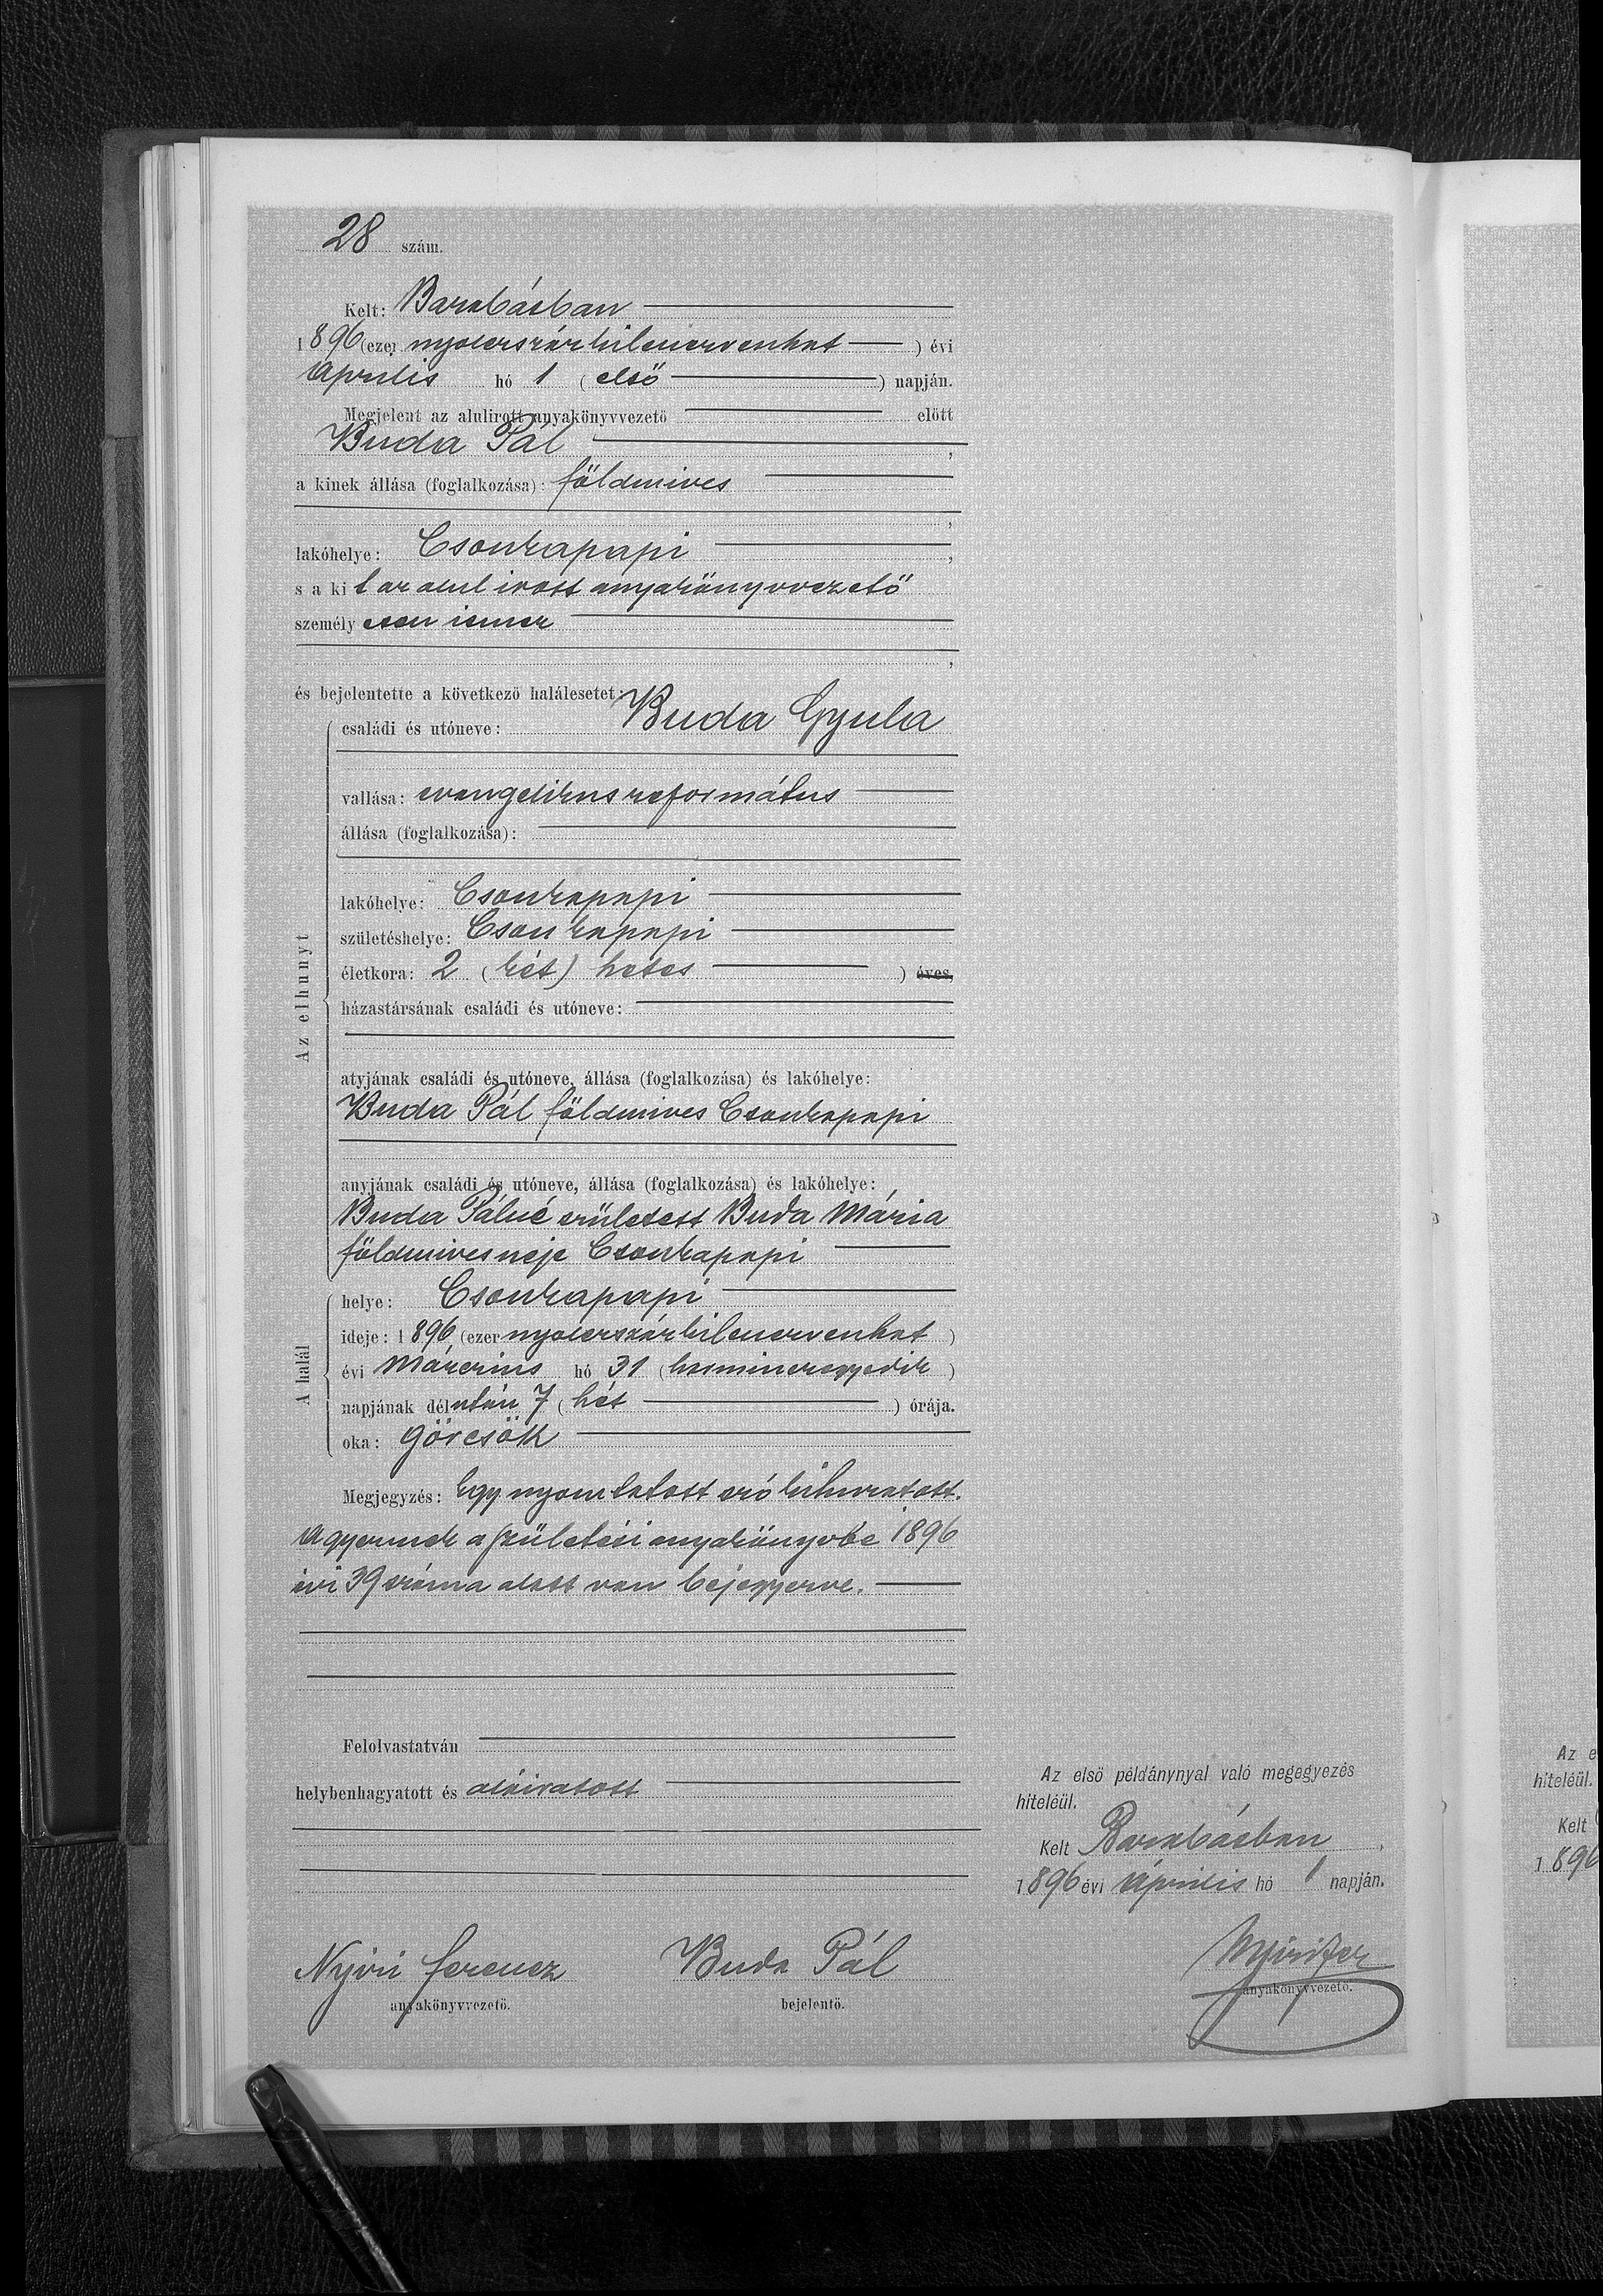 28 szám.
Kelt: Barabásban
1896 (ezer nyolcszázkilencvenhat) évi
április hó 1 (első) napján.
Megjelent az alulirott anyakönyvvezető előtt
Buda Pál,
a kinek állása (foglalkozása): földmives
,
lakóhelye: Csonkapapi,
s a kit az alul irott anyakönyvvezető
személyesen ismer
,
és bejelentette a következő halálesetet:
Az elhunyt
családi és utóneve: Buda Gyula
vallása: evangelikus református
állása (foglalkozása):
lakóhelye: Csonkapapi
születéshelye: Csonkapapi
életkora: 2 (két) hetes ) éves,
házastársának családi és utóneve:
atyjának családi és utóneve, állása (foglalkozása) és lakóhelye:
Buda Pál földmives Csonkapapi
anyjának családi és utóneve, állása (foglalkozása) és lakóhelye:
Buda Pálné született Buda Mária
földmives neje Csonkapapi
A halál
helye: Csonkapapi
ideje: 1896 (ezer nyolcszázkilencvenhat)
évi március hó 31 (harmincegyedik)
napjának délután 7 (hét) órája.
oka: görcsök
Megjegyzés: Egy nyomtatott szó kihuzatott.
A gyermek a születési anyakönyvbe 1896
évi 39 száma alatt van bejegyezve.
Felolvastatván
helybenhagyatott és aláiratott
Az első példánynyal való megegyezés
hiteléül.
Kelt Barabásban,
1896 évi április hó 1 napján.
Nyiri Ferencz Buda Pál Nyiri Fer
anyakönyvvezető. bejelentő. anyakönyvvezető.
Az e
hiteléül.
Kelt
1896